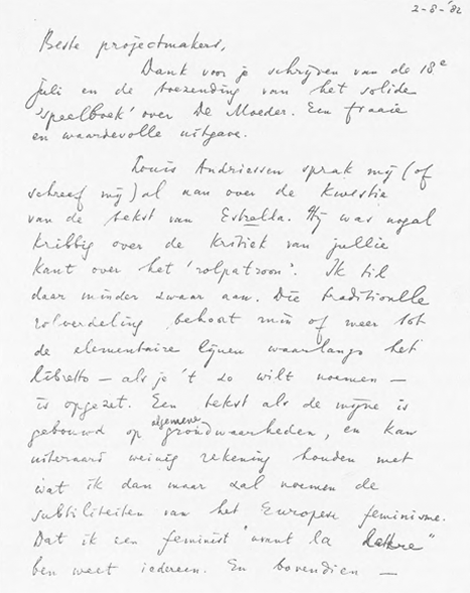 2-8-'82
Beste projectmakers,
Dank voor je schrijven van de 18e
juli en de toezending van het solide
'speelboek' over De Moeder. Een fraaie
en waardevolle uitgave.
Louis Andriessen sprak mij (of
schreef mij) al aan over de kwestie
van de tekst van Estrella. Hij was nogal
kribbig over de kritiek van jullie
kant over het 'rolpatroon'. Ik til
daar minder zwaar aan. Die traditionele
rolverdeling behoort min of meer tot
de elementaire lijnen waarlangs het
libretto — als je 't zo wilt noemen —
is opgezet. Een tekst als de mijne is
gebouwd op algemene grondwaarheden, en kan
uiteraard weinig rekening houden met
wat ik dan maar zal noemen de
subtiliteiten van het Europese feminisme.
Dat ik een feminist "avant la lettre"
ben weet iedereen. En bovendien —